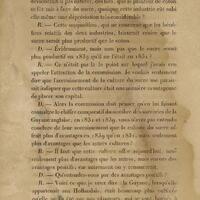 ou elle y soit à faire de sucre, quoique du coton eût subi
elle même une dépréciation très considérable ?
R. — Cette question, qui ne concernait que les béné-
fices relatifs des deux industries, laisserait croire que le
sucre serait plus productif que le coton.
D. — Évidemment, mais non pas que le sucre serait
plus productif en 1839 qu'il ne l'était en 1831.
R. — Ce n'était pas là le point sur lequel j'avais cru
appeler l'attention de la commission. Je voulais seulement
dire que l'accroissement de la culture du sucre me parais-
sait indiquer que cette culture était une manière avantageuse
de placer son capital.
D. — Alors la commission doit penser qu'en lui faisant
connaître le chiffre comparatif du nombre des sucreries de la
Guyane anglaise, en 1831 et 1839, vous n'avez pas entendu
conclure de leur accroissement que la culture du sucre of-
frît plus d'avantages en 1839 qu'en 1831, mais seulement
plus d'avantages que les autres cultures ?
R. — Il faut que cette culture offre aujourd'hui, non
seulement plus d'avantages que les autres, mais encore des
avantages positifs, car autrement on y renoncerait.
D. — Qu'entendez-vous par des avantages positifs ?
R. — Voici ce que je veux dire : la Guyane, lorsqu'elle
appartenait aux Hollandais, était beaucoup plus cultivée